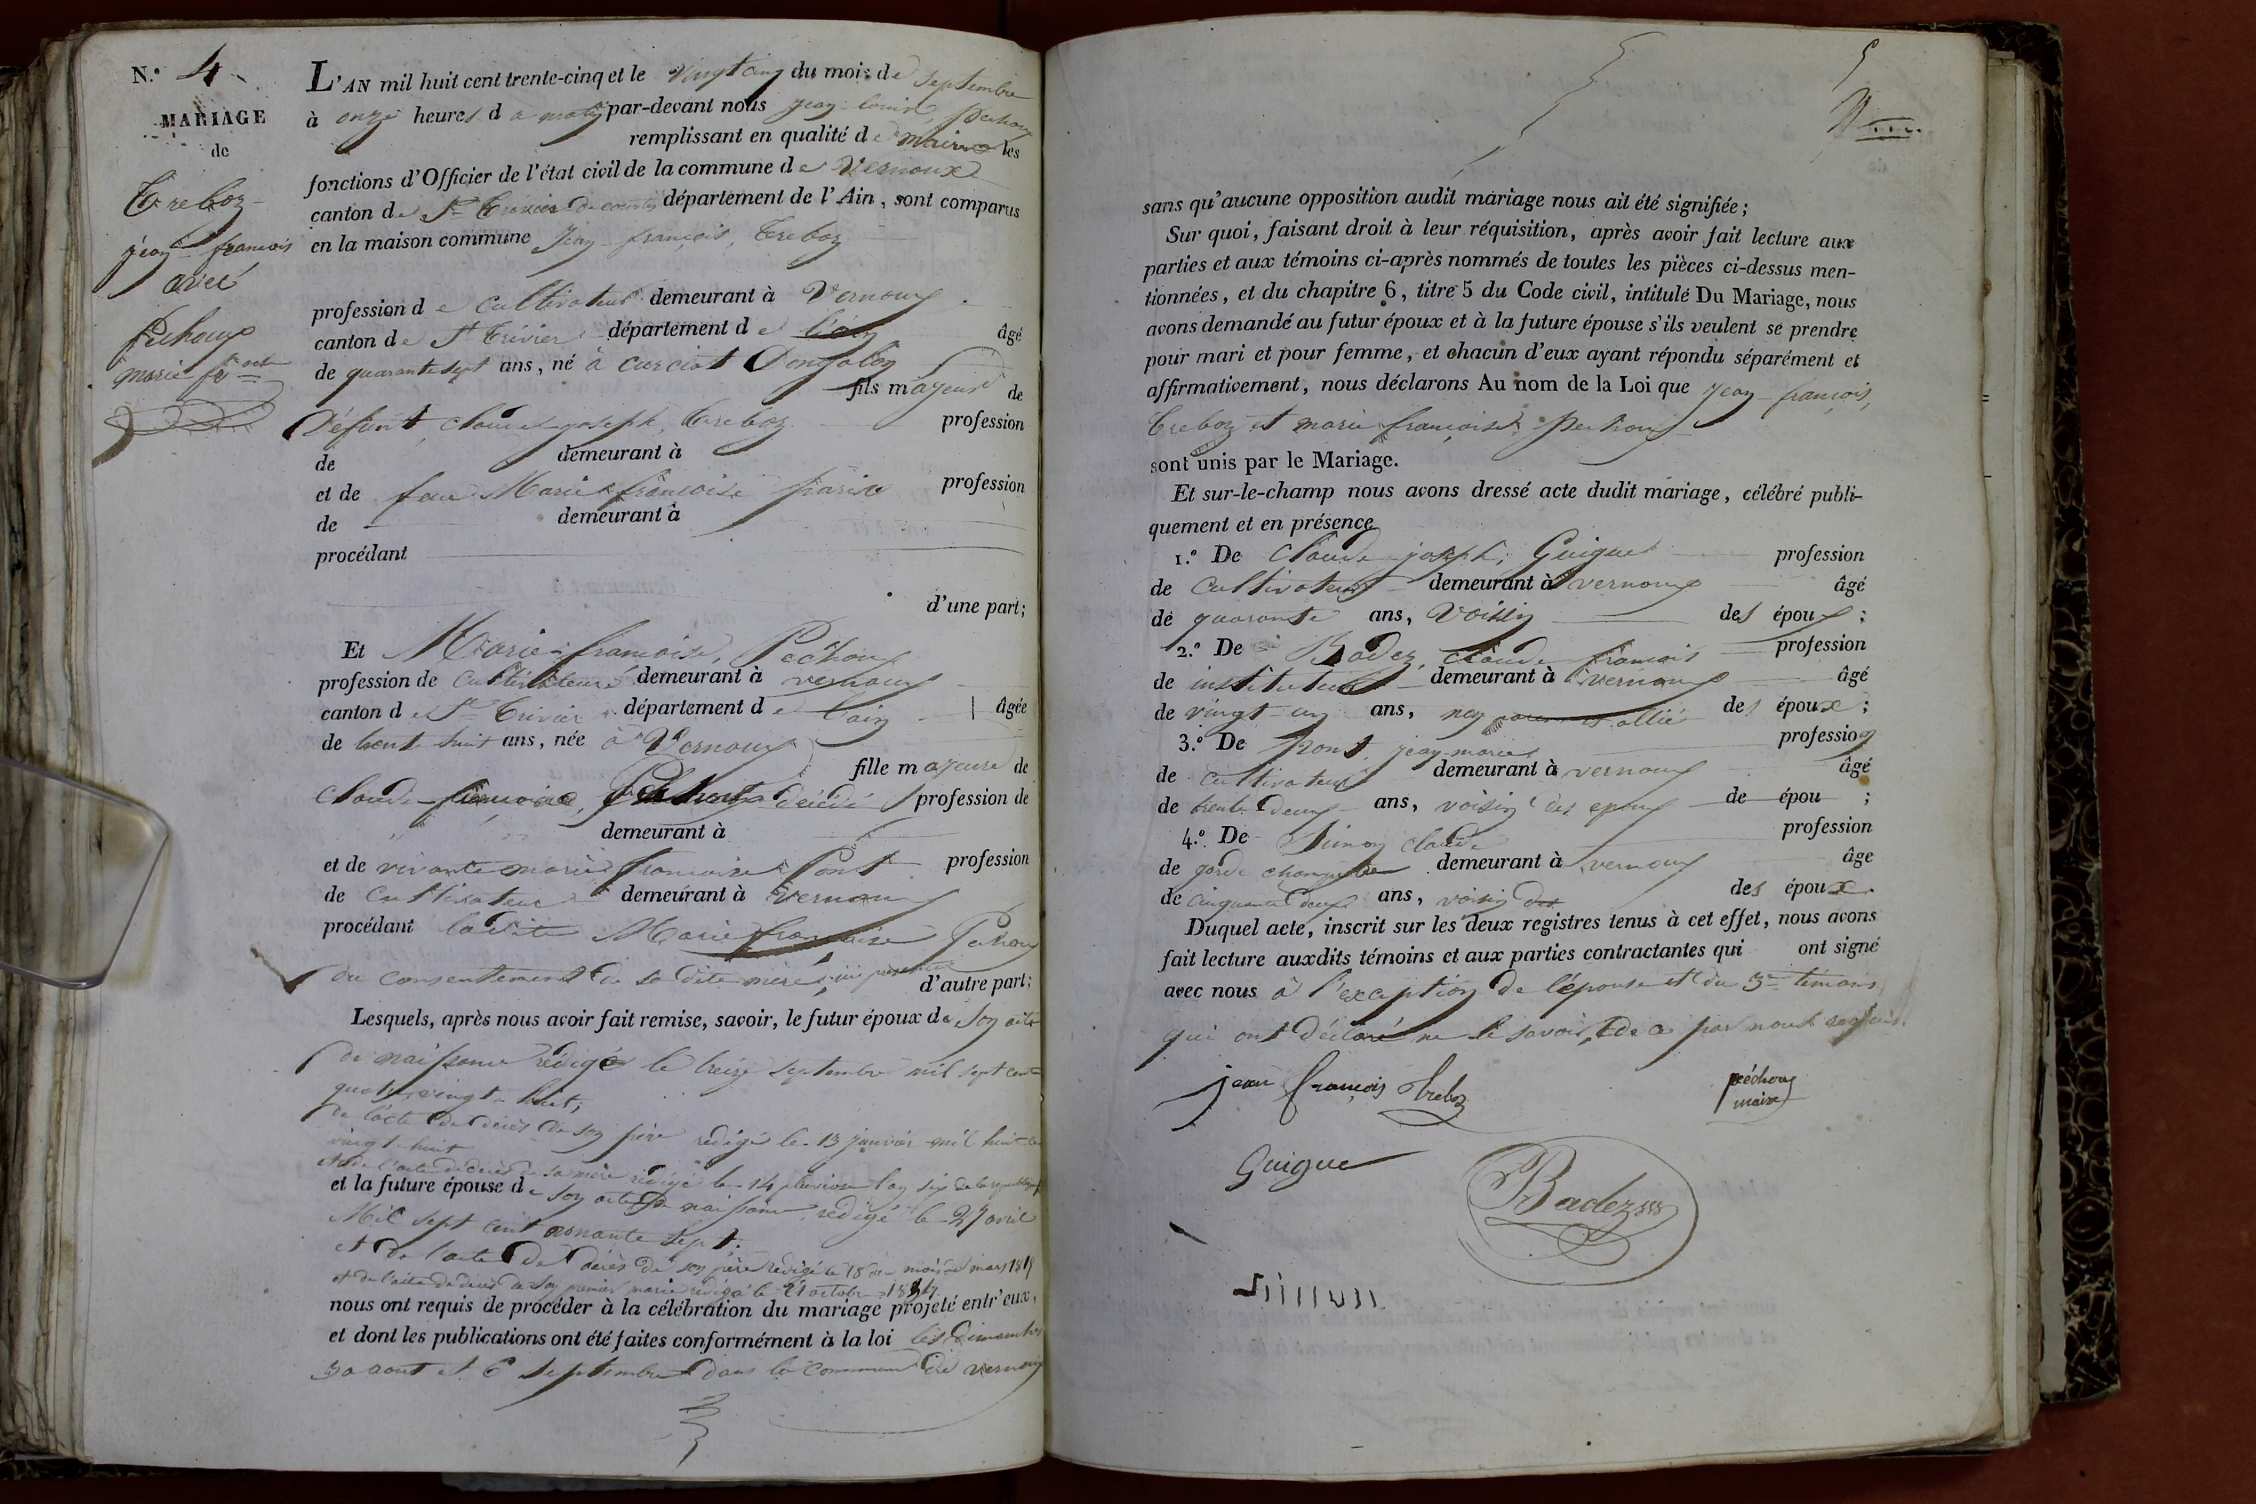 N.o 4
MARIAGE
de
Treboz
jean françois
avec
Pechoux
marie fr.oise
L'AN mil huit cent trente-cinq et le vingt cinq du mois de septembre
à onze heures d u matin par-devant nous jean louis pechoux
remplissant en qualité de maire les
fonctions d'Officier de l'état civil de la commune de Vernoux
canton de St Trivier de courtes département de l'Ain, sont comparus
en la maison commune jean françois, Treboz
profession de cultivateur demeurant à Vernoux
canton de St Trivier département de l'ain âgé
de quarante sept ans, né à curciat Dongalon
fils majeur de
Défunt, claude joseph, Treboz profession
de demeurant à
et de feue Marie françoise profession
de demeurant à
procédant
d'une part;
Et Marie françoise, Pechoux
profession de cultivateure demeurant à vernoux
canton de St Trivier département de l'ain âgée
de trente huit ans, née à Vernoux
fille majeure de
claude françois, Pechoux décédé profession de
demeurant à
et de vivante marie françoise Pont profession
de cultivateur demeurant à Vernoux
procédant ladite Marie françoise Pechoux
du consentement de sa dite mère ici présente d'autre part;
Lesquels, après nous avoir fait remise, savoir, le futur époux de son acte
de naissance rédigé le treize septembre mil sept cent
quatre vingt huit;
de l'acte de décès de son père redigé le 13 janvier mil huit cent
vingt huit
et de l'acte de décès de sa mère redigé le 14 pluviose l'an six de la republique
et la future épouse de son acte de naissance redigé le 27 avril
Mil sept cent nonante sept;
et de l'acte de décès de son père redigé le 18 du mois de mars 1819
et de l'acte de décès de son premier marie redigé le 21 octobre 1834
nous ont requis de procéder à la célébration du mariage projeté entr'eux,
et dont les publications ont été faites conformément à la loi les dimanches
30 aout et 6 septembre dans la commune de vernoux
5
sans qu'aucune opposition audit mariage nous ait été signifiée;
Sur quoi, faisant droit à leur réquisition, après avoir fait lecture aux
parties et aux témoins ci-après nommés de toutes les pièces ci-dessus men-
tionnées, et du chapitre 6, titre 5 du Code civil, intitulé Du Mariage, nous
avons demandé au futur époux et à la future épouse s'ils veulent se prendre
pour mari et pour femme, et chacun d'eux ayant répondu séparément et
affirmativement, nous déclarons Au nom de la Loi que jean françois,
Treboz et marie françoise Pechoux
sont unis par le Mariage.
Et sur-le-champ nous avons dressé acte dudit mariage, célébré publi-
quement et en présence
1.o De claude joseph, Guigue profession
de cultivateur demeurant à vernoux âgé
de quarante ans, voisin des époux;
2.o De Badez, claude françois profession
de instituteur demeurant à vernoux âgé
de vingt un ans, non parent ni allié des époux;
3.o De Pont jean marie profession
de cultivateur demeurant à vernoux âgé
de trente deux ans, voisin des epoux de épou ;
4.o De Simon claude profession
de garde champetre demeurant à vernoux âge
de cinquante deux ans, voisin des des époux.
Duquel acte, inscrit sur les deux registres tenus à cet effet, nous avons
fait lecture auxdits témoins et aux parties contractantes qui ont signé
avec nous à l'exception de l'épouse et du 3e témoins
qui ont déclaré ne le savoir, de ce par nous requis.
jean françois treboz
péchoux
maire
Guigue
Badez